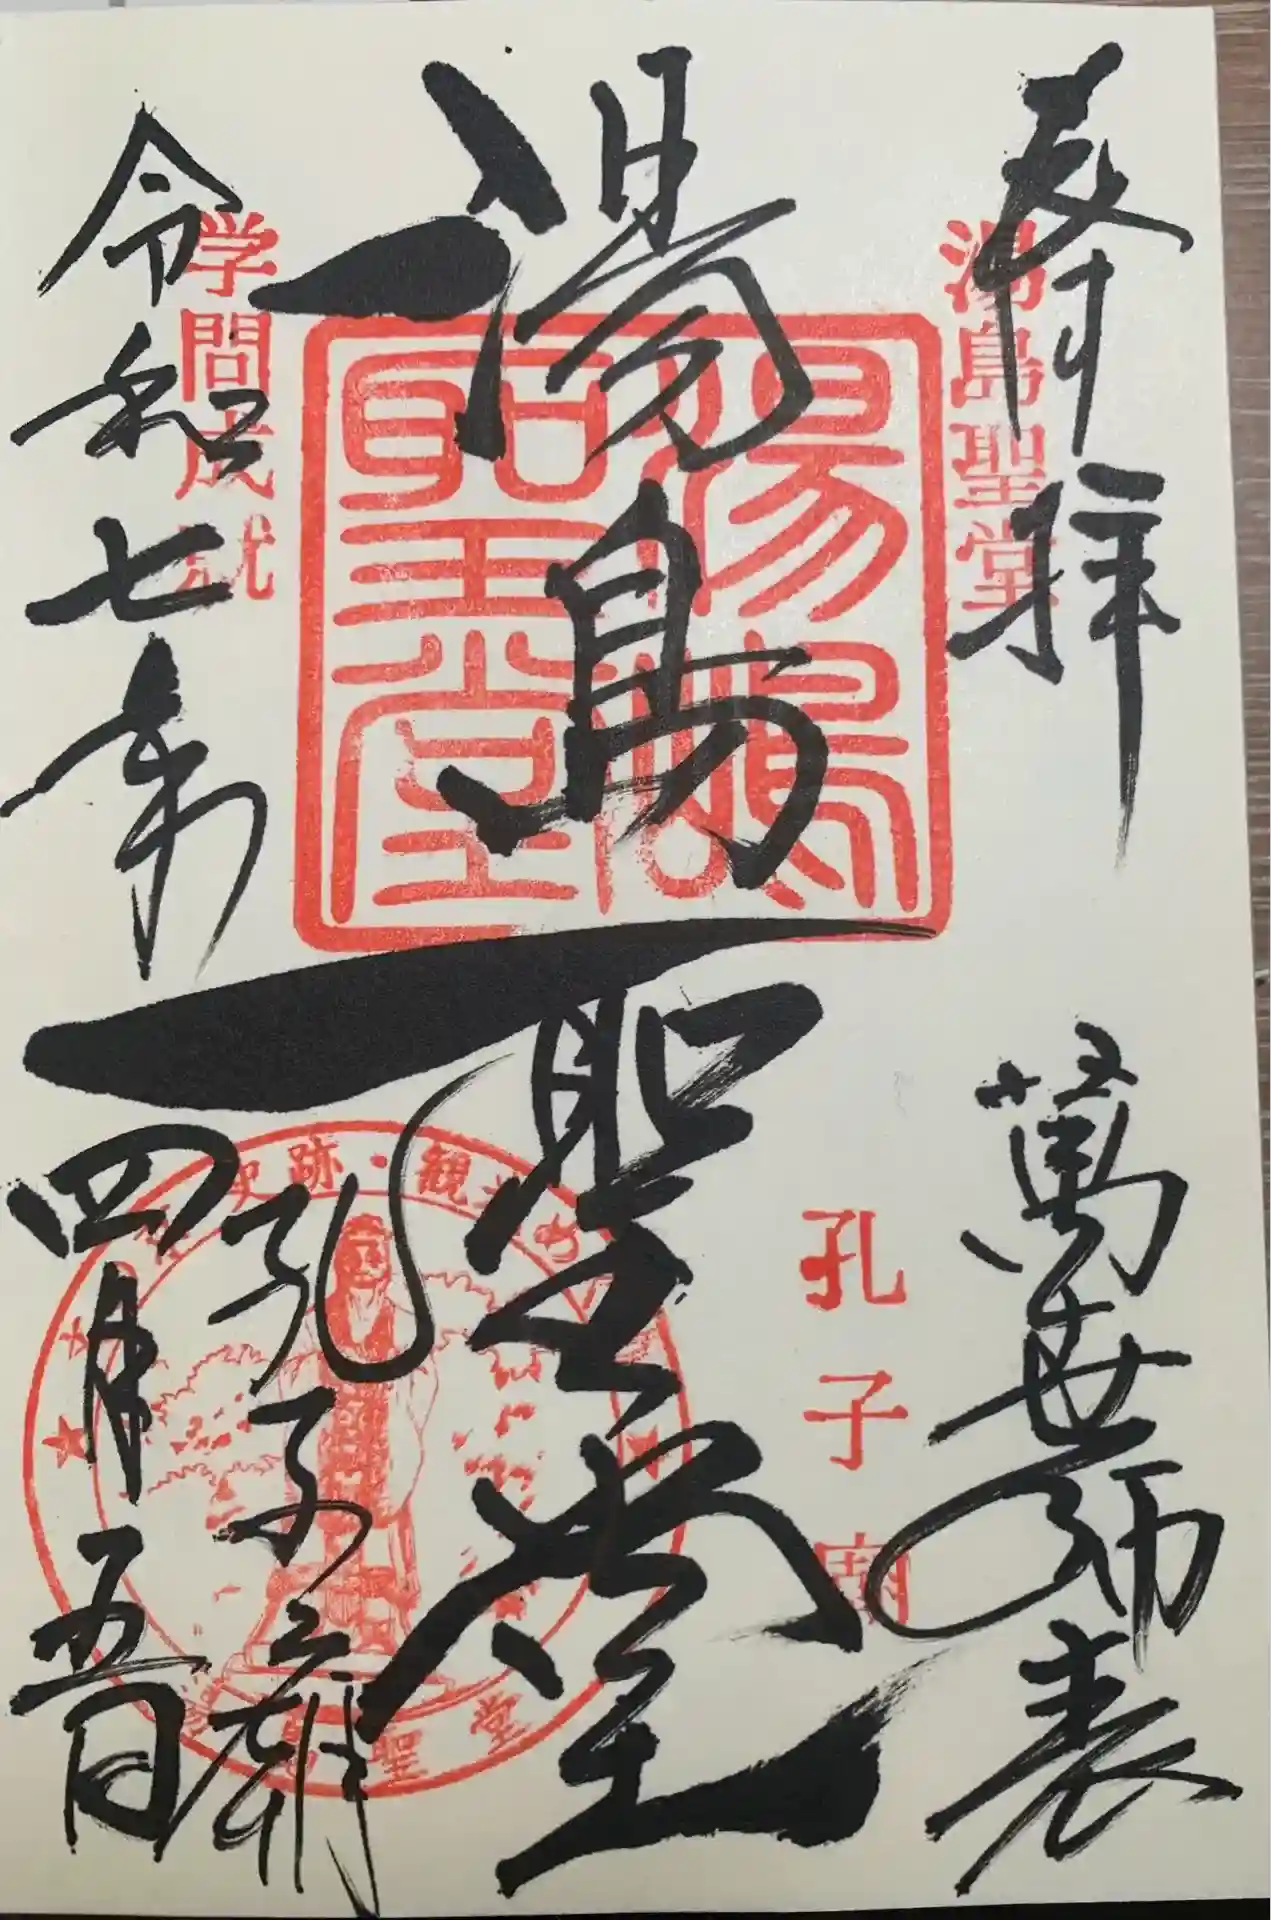 奉拝
湯島聖堂
萬世師表
孔子廟
湯島聖堂
湯島聖堂
学問成就
孔子
史跡・観
島聖堂
令和七年
四月五日